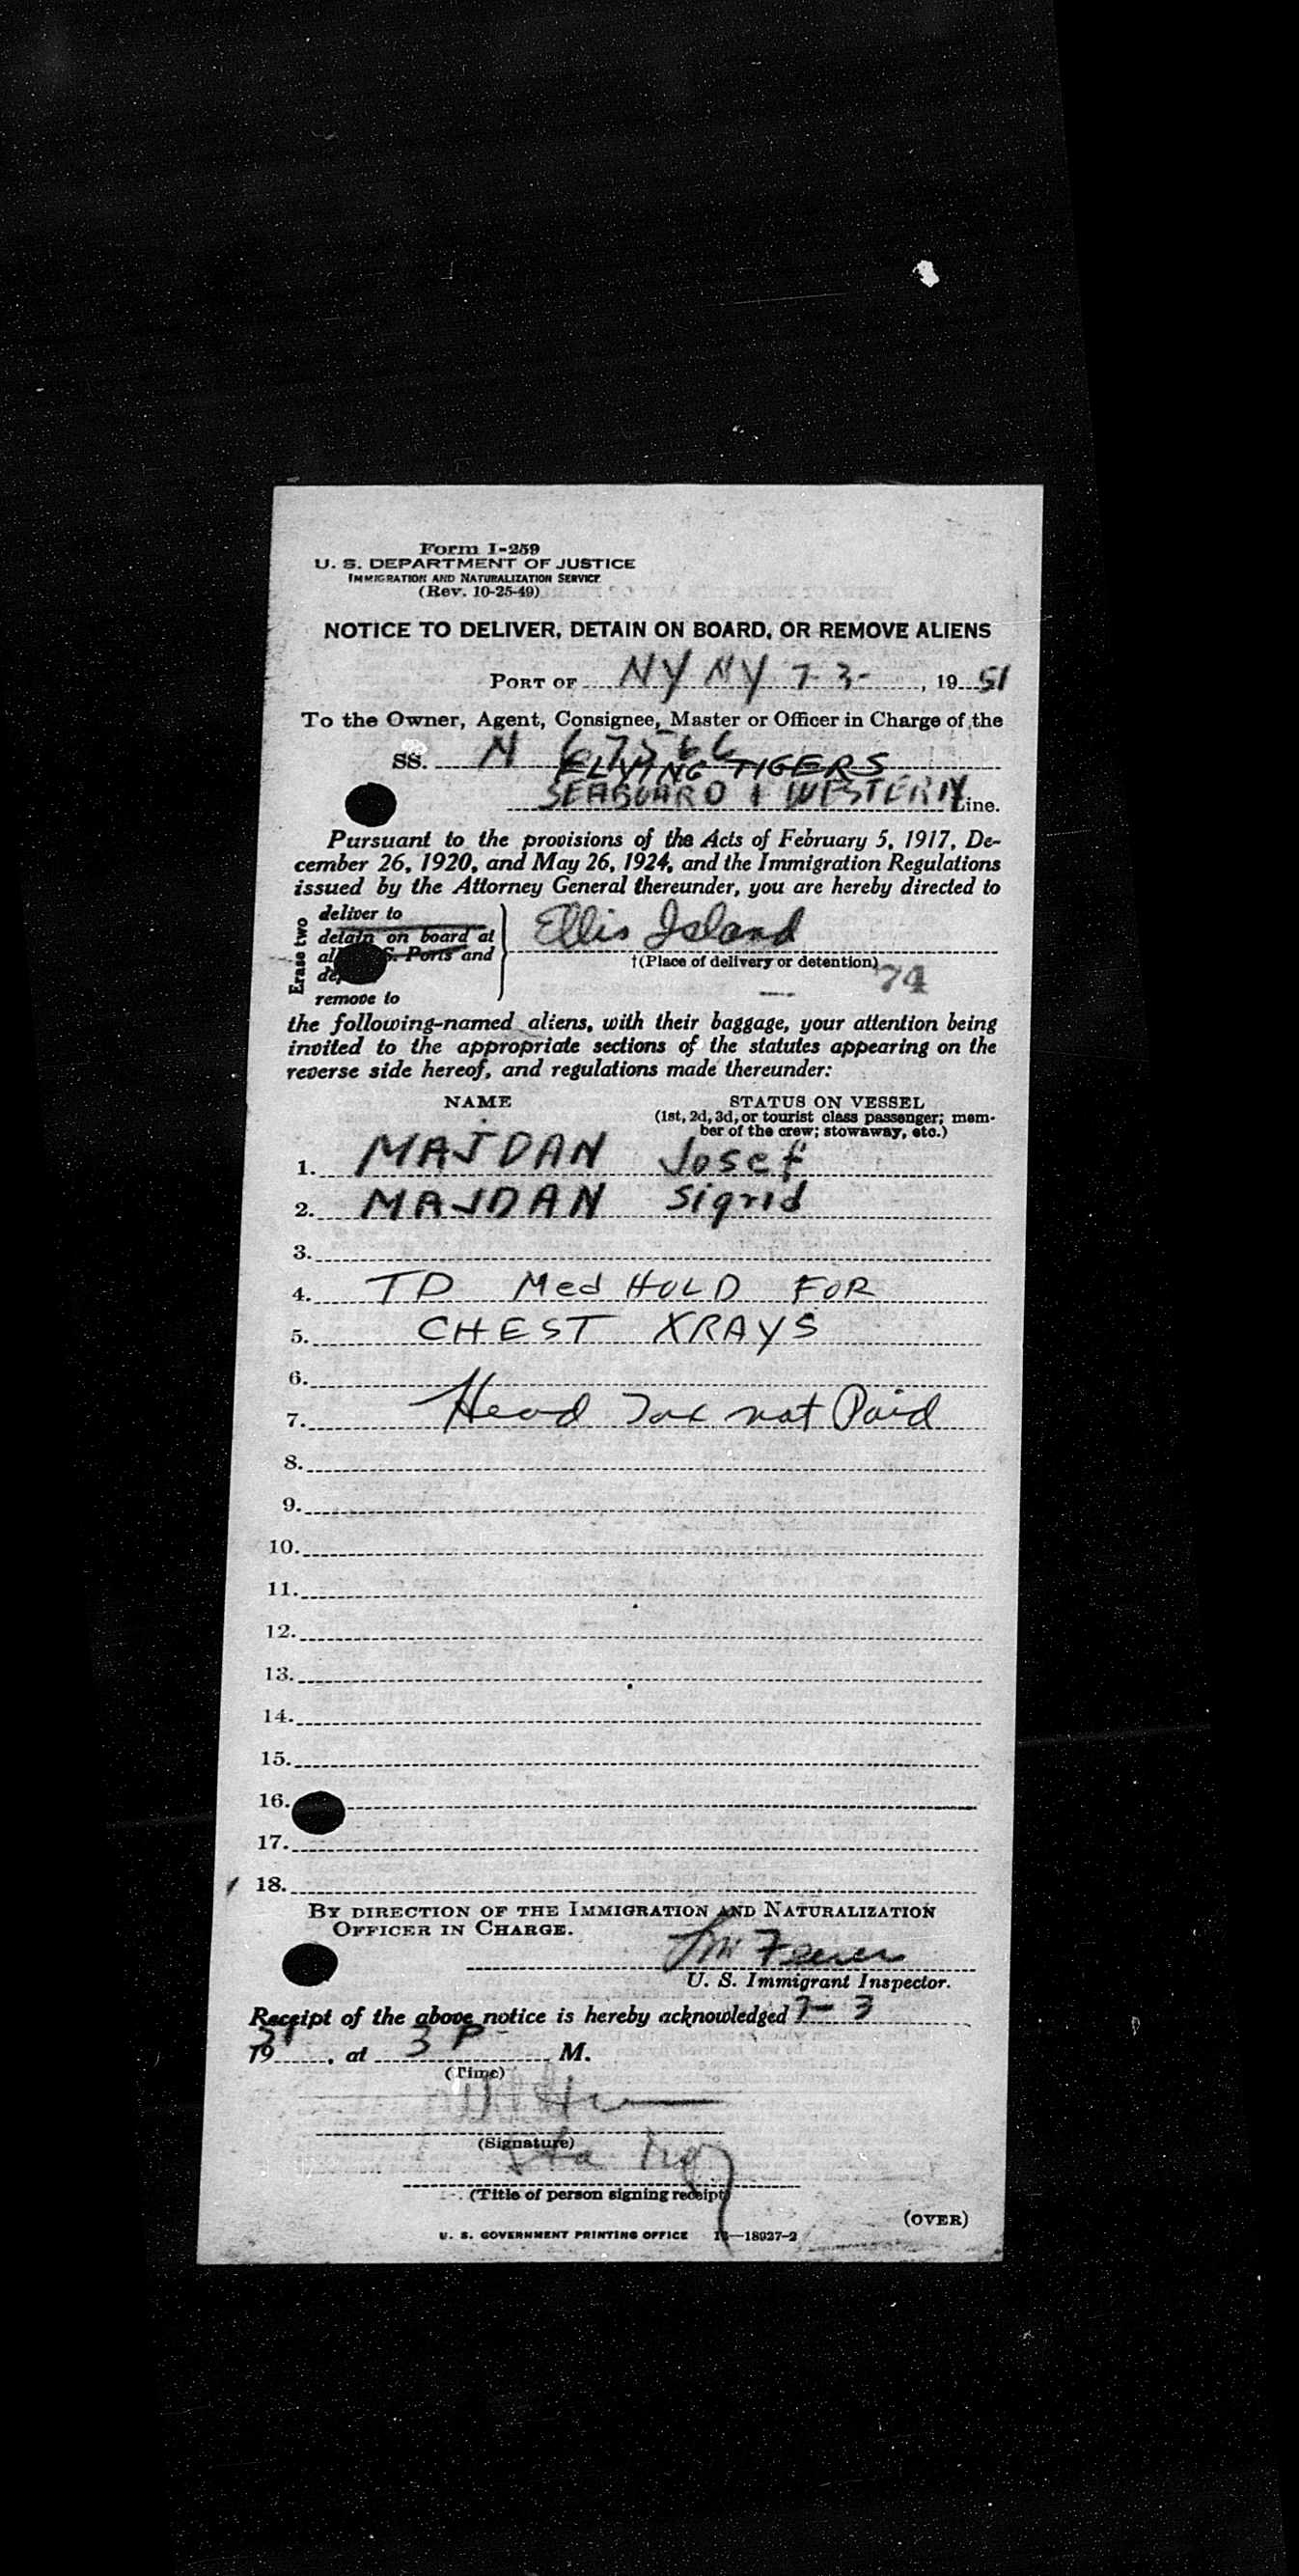 Form I-259
U. S. DEPARTMENT OF JUSTICE
IMMIGRATION AND NATURALIZATION SERVICE
(Rev. 10-25-49)
NOTICE TO DELIVER, DETAIN ON BOARD, OR REMOVE ALIENS
PORT OF NY NY 7-3-, 19 51
To the Owner, Agent, Consignee, Master or Officer in Charge of the
SS. N 67566
FLYING TIGERS
SEABOARD & WESTERN Line.
Pursuant to the provisions of the Acts of February 5, 1917, De-
cember 26, 1920, and May 26, 1924, and the Immigration Regulations
issued by the Attorney General thereunder, you are hereby directed to
Erase two
deliver to
detain on board at
S. Ports and
remove to
Ellis Island
†(Place of delivery or detention)
74
the following-named aliens, with their baggage, your attention being
invited to the appropriate sections of the statutes appearing on the
reverse side hereof, and regulations made thereunder:
NAME STATUS ON VESSEL
(1st, 2d, 3d, or tourist class passenger; mem-
ber of the crew; stowaway, etc.)
1. MAJDAN Josef
2. MAJDAN Sigrid
3.
4. TD Med HOLD FOR
5. CHEST XRAYS
6.
7. Head Tax not Paid
8.
9.
10.
11.
12.
13.
14.
15.
16.
17.
18.
BY DIRECTION OF THE IMMIGRATION AND NATURALIZATION
OFFICER IN CHARGE.
U. S. Immigrant Inspector.
Receipt of the above notice is hereby acknowledged 7-3
19 51, at 3 P M.
(Time)
(Signature)
(Title of person signing receipt)
(OVER)
U. S. GOVERNMENT PRINTING OFFICE 16—18927-2